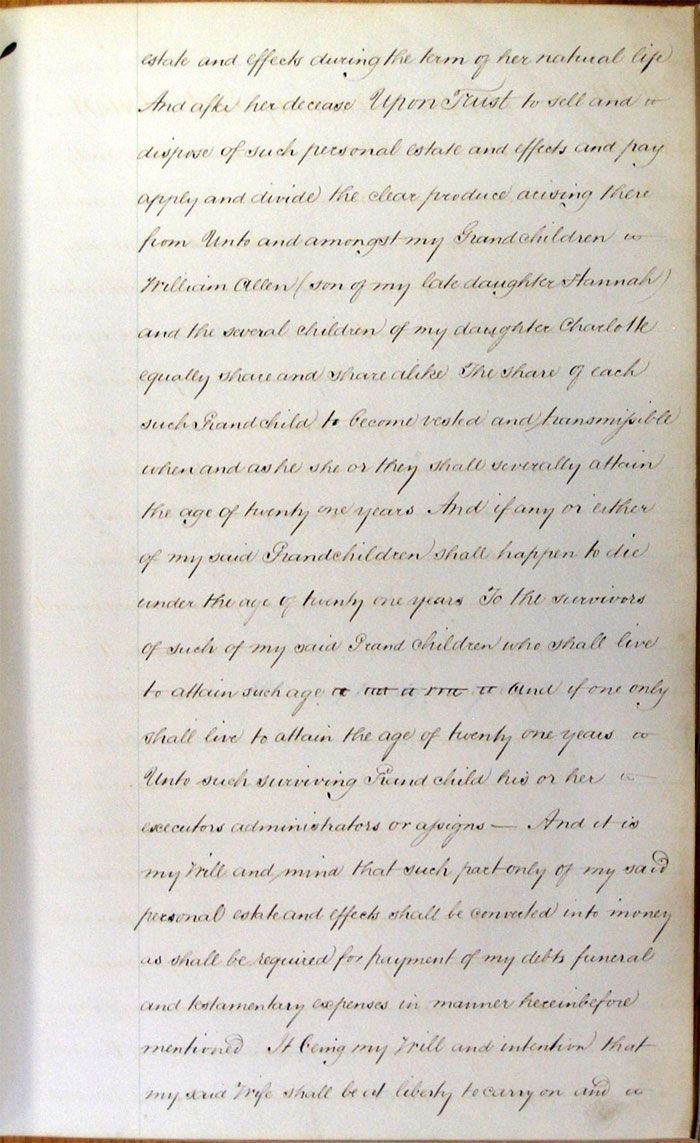 estate and effects during the term of her natural life
And after her decease Upon Trust to sell and
dispose of such personal estate and effects and pay
apply and divide the clear produce arising there
from Unto and amongst my Grandchildren
William Allen (son of my late daughter Hannah)
and the several children of my daughter Charlotte
equally share and share alike The share of each
such Grandchild to become vested and transmissible
when and as he she or they shall severally attain
the age of twenty one years And if any or either
of my said Grandchildren shall happen to die
under the age of twenty one years To the survivors
of such of my said Grand Children who shall live
to attain such age And if one only
shall live to attain the age of twenty one years
Unto such surviving Grand child his or her
executors administrators or assigns — And it is
my Will and mind that such part only of my said
personal estate and effects shall be converted into money
as shall be required for payment of my debts funeral
and testamentary expenses in manner hereinbefore
mentioned It being my Will and intention that
my said Wife shall be at liberty to carry on and